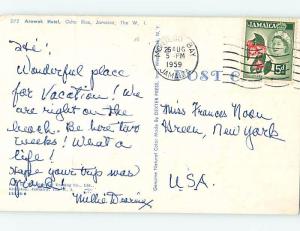 272 Arawak Hotel, Ocho Rios, Jamaica, The W. I.
Hi!
Wonderful place
for Vacation! We
are right on the
beach. Be here two
weeks! What a
life!
Hope your trip was
grand!
Millie Dearing
Genuine Natural Color Made By DEXTER PRESS
POST C
BAY
25 AUG
5 PM
1959
JAMAICA
JAMAICA
5d
Miss Frances Noon
Green, New York
U.S.A.